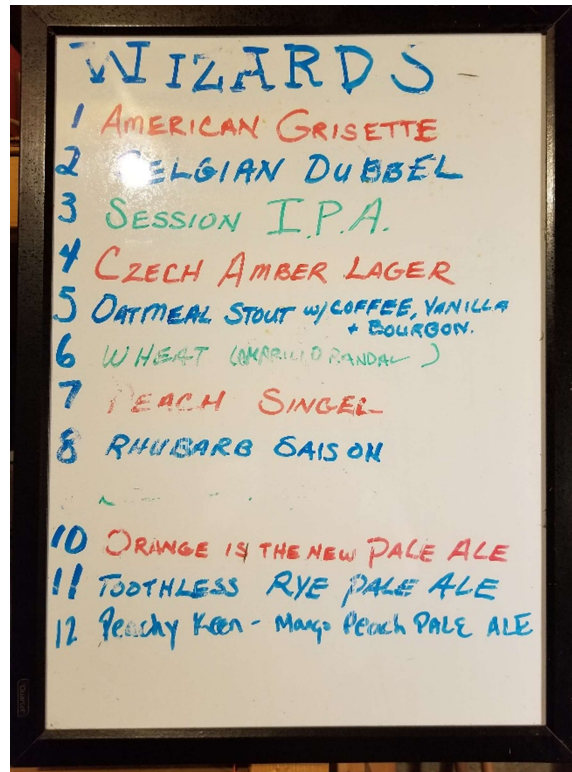 WIZARDS
1 AMERICAN GRISETTE
2 BELGIAN DUBBEL
3 SESSION I.P.A.
4 CZECH AMBER LAGER
5 OATMEAL STOUT W/ COFFEE, VANILLA
+ BOURBON.
6 WHEAT (AMARILLO RANDAL)
7 PEACH SINGEL
8 RHUBARB SAISON
10 ORANGE IS THE NEW PALE ALE
11 TOOTHLESS RYE PALE ALE
12 Peachy Keen - Mango Peach PALE ALE